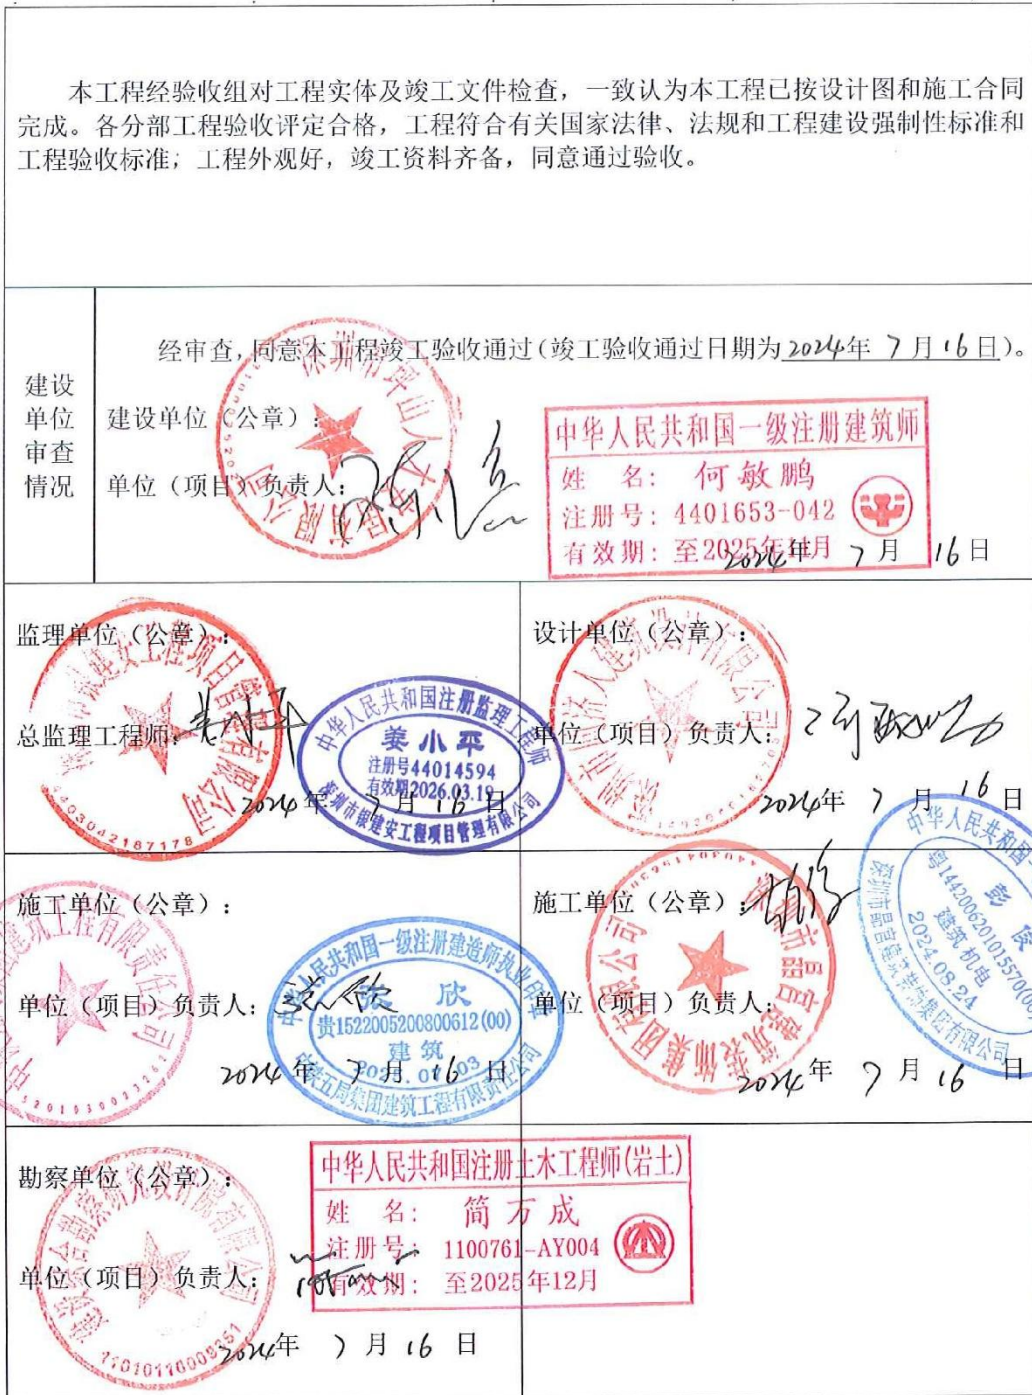 本工程经验收组对工程实体及竣工文件检查，一致认为本工程已按设计图和施工合同
完成。各分部工程验收评定合格，工程符合有关国家法律、法规和工程建设强制性标准和
工程验收标准；工程外观好，竣工资料齐备，同意通过验收。
建设
单位
审查
情况
经审查，同意本工程竣工验收通过（竣工验收通过日期为2024年 7月16日）。
建设单位（公章）：
单位（项目）负责人：
中华人民共和国一级注册建筑师
姓 名： 何敏鹏
注册号：4401653-042
有效期：至2025年11月
2024年 7月 16日
监理单位（公章）：
总监理工程师：
4403042187178
中华人民共和国注册监理工程师
姜小平
注册号44014594
有效期2026.03.19
深圳市银建安工程项目管理有限公司
2024年 7月 16日
设计单位（公章）：
单位（项目）负责人：
2024年 7月 16日
施工单位（公章）：
单位（项目）负责人：
中华人民共和国一级注册建造师执业印章
欣
贵1522005200800612(00)
建筑
中铁五局集团建筑工程有限责任公司
2024年 7月 16日
施工单位（公章）：
单位（项目）负责人：
中华人民共和国一
彭
粤1442006201015570(00)
建筑 机电
2024.08.24
2024年 7月 16日
勘察单位（公章）：
单位（项目）负责人：
中华人民共和国注册土木工程师(岩土)
姓 名： 简万成
注册号：1100761-AY004
有效期：至2025年12月
2024年 7月 16日